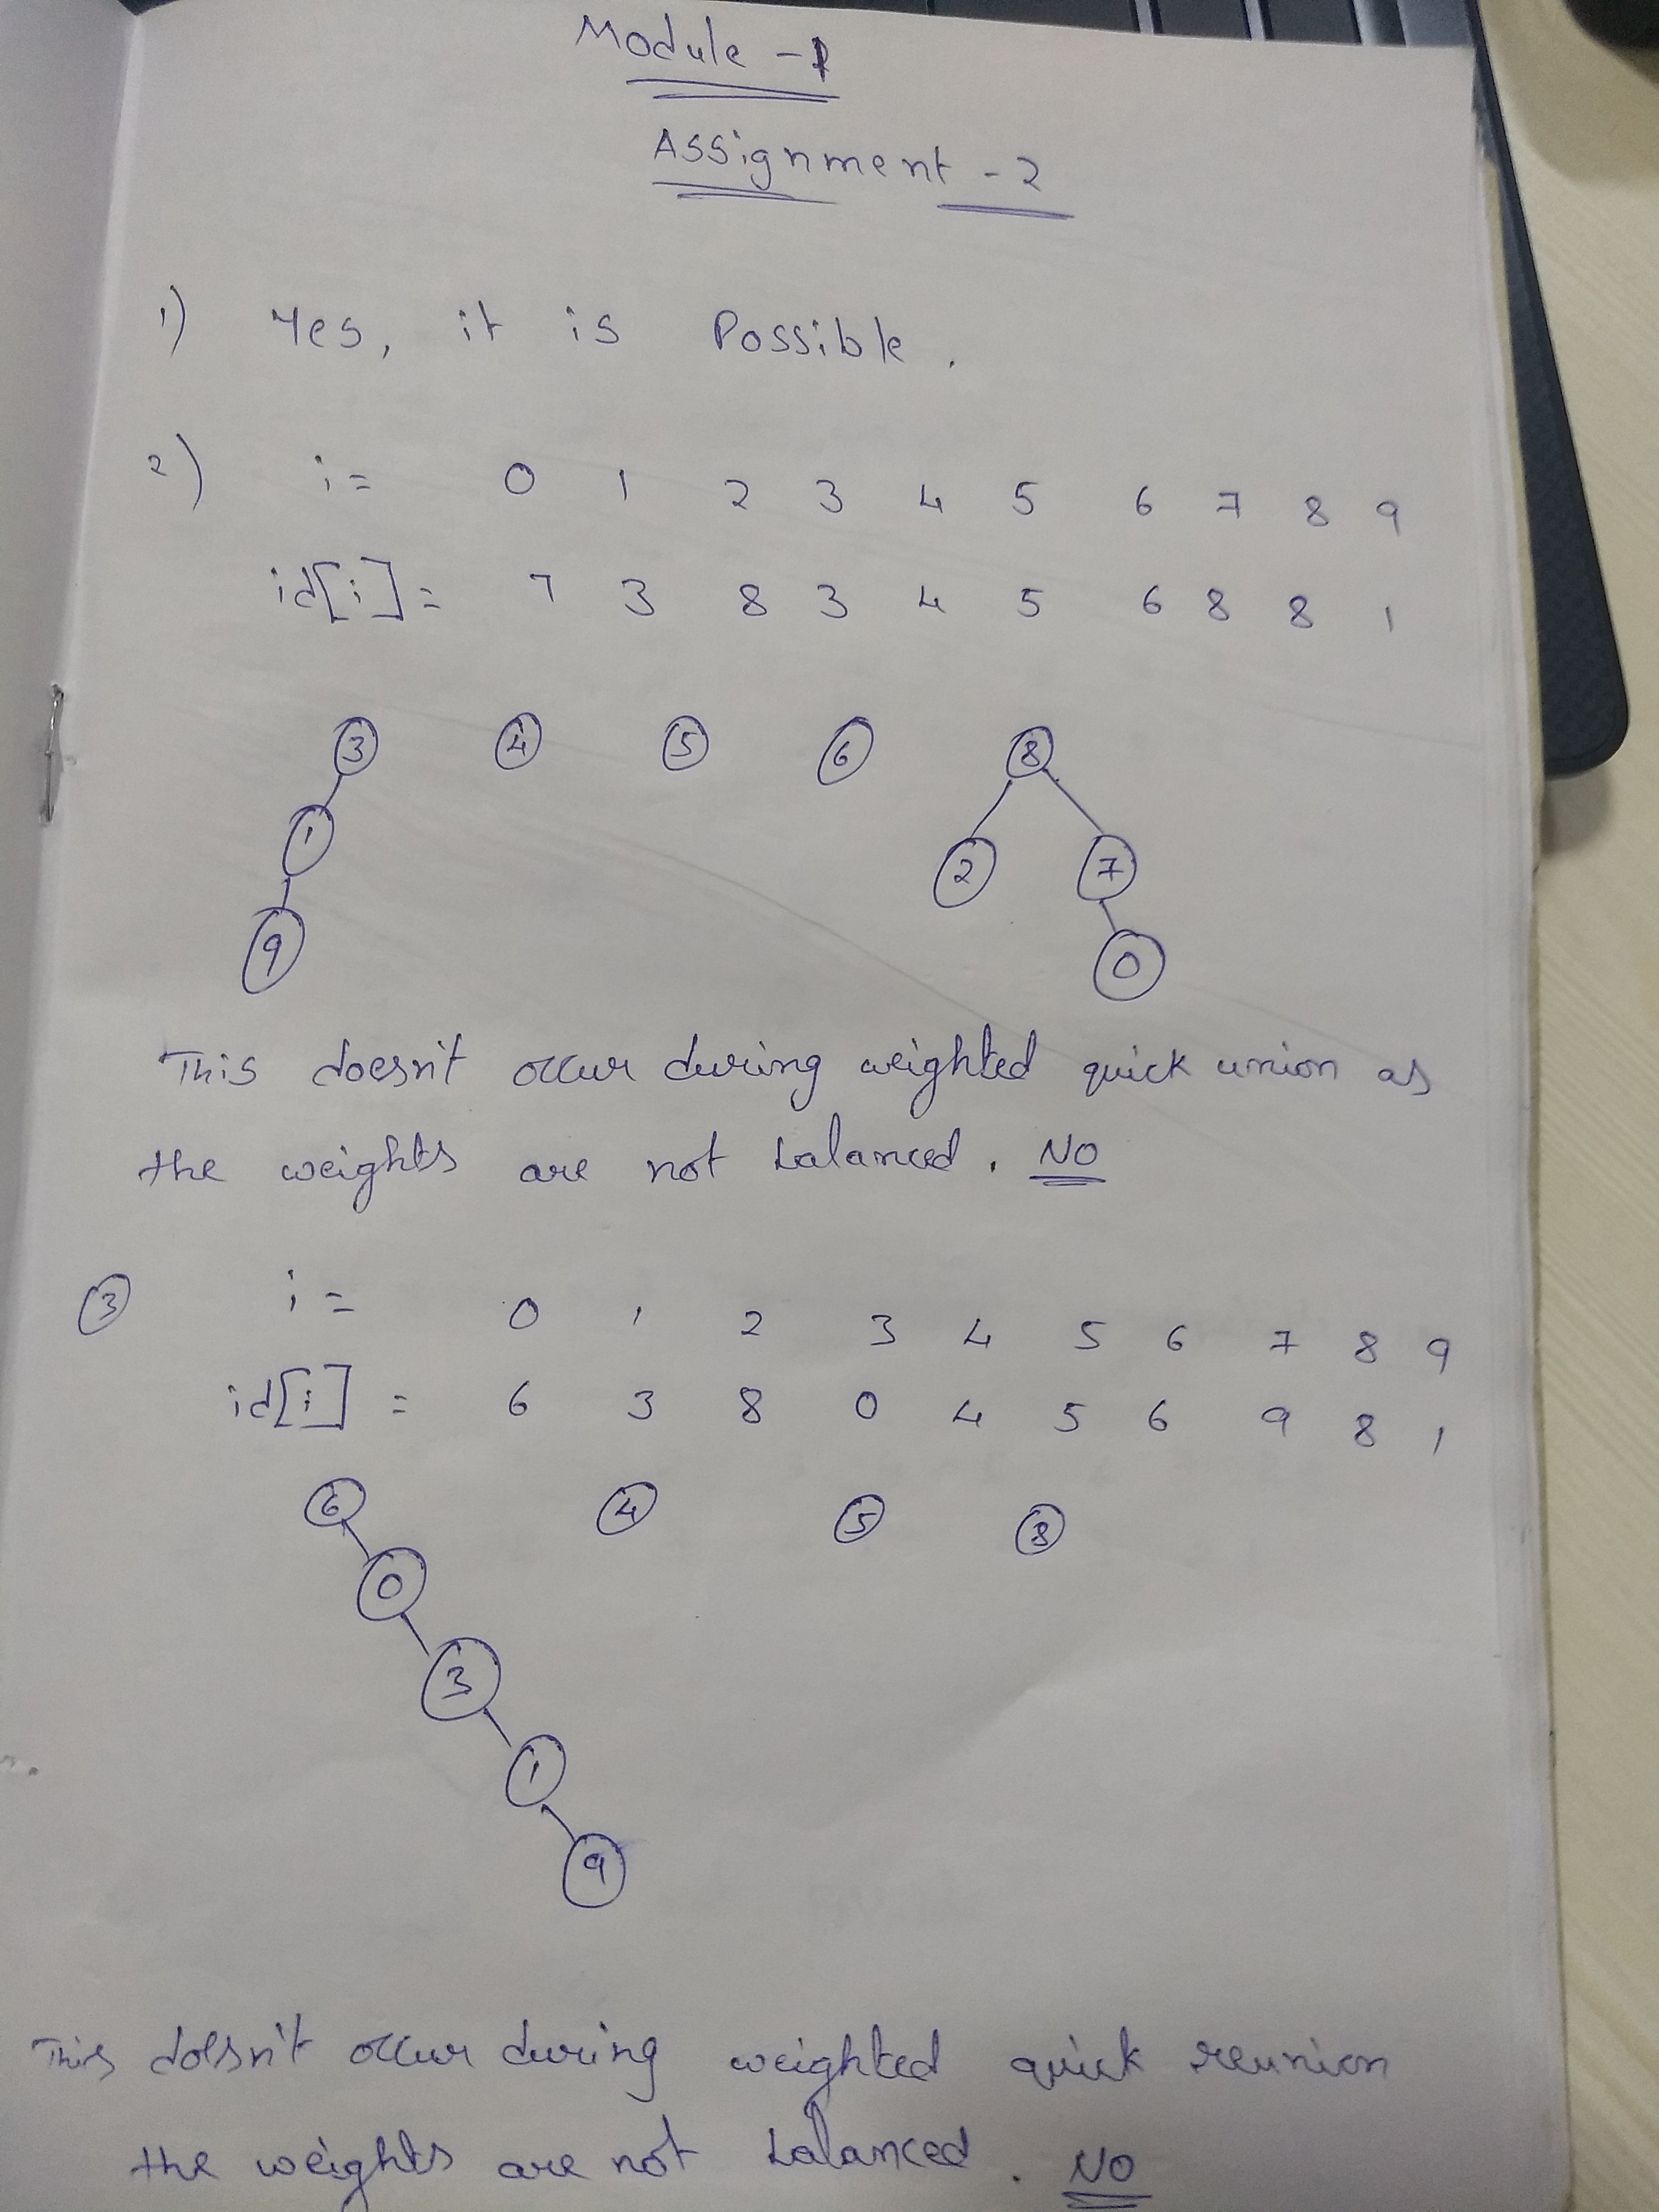 Module - 1
Assignment - 2
1) Yes, it is Possible.
2) i = 0 1 2 3 4 5 6 7 8 9
id[i] = 7 3 8 3 4 5 6 8 8 1
3 4 5 6 8
1 2 7
9 0
This doesn't occur during weighted quick union as
the weights are not balanced. NO
3 i = 0 1 2 3 4 5 6 7 8 9
id[i] = 6 3 8 0 4 5 6 9 8 1
6 4 5 8
0
3
1
9
This doesn't occur during weighted quick reunion
the weights are not balanced. NO